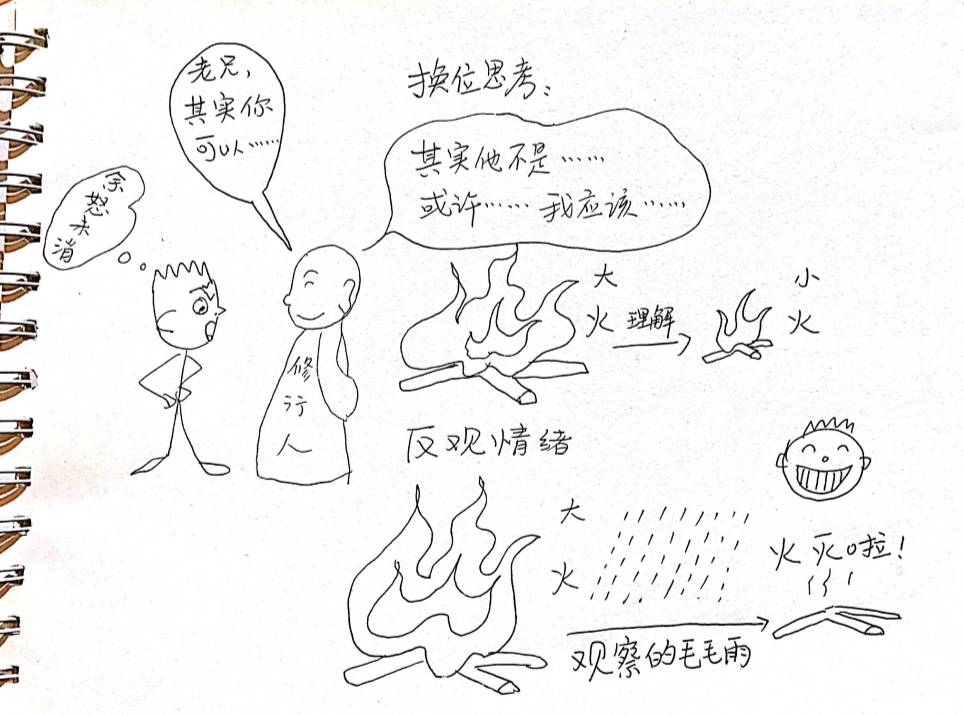 老兄，
其实你
可以……
余怒未消
修行人
换位思考：
其实他不是……
或许…… 我应该……
大火
理解
小火
反观情绪
大火
观察的毛毛雨
火灭啦！